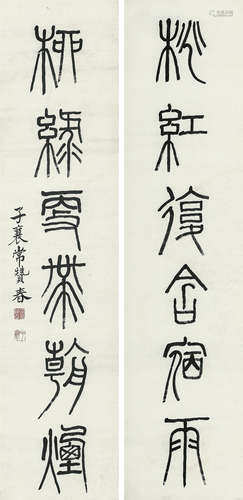 桃紅復含宿雨
柳綠更帶朝煙
子襄常贊春